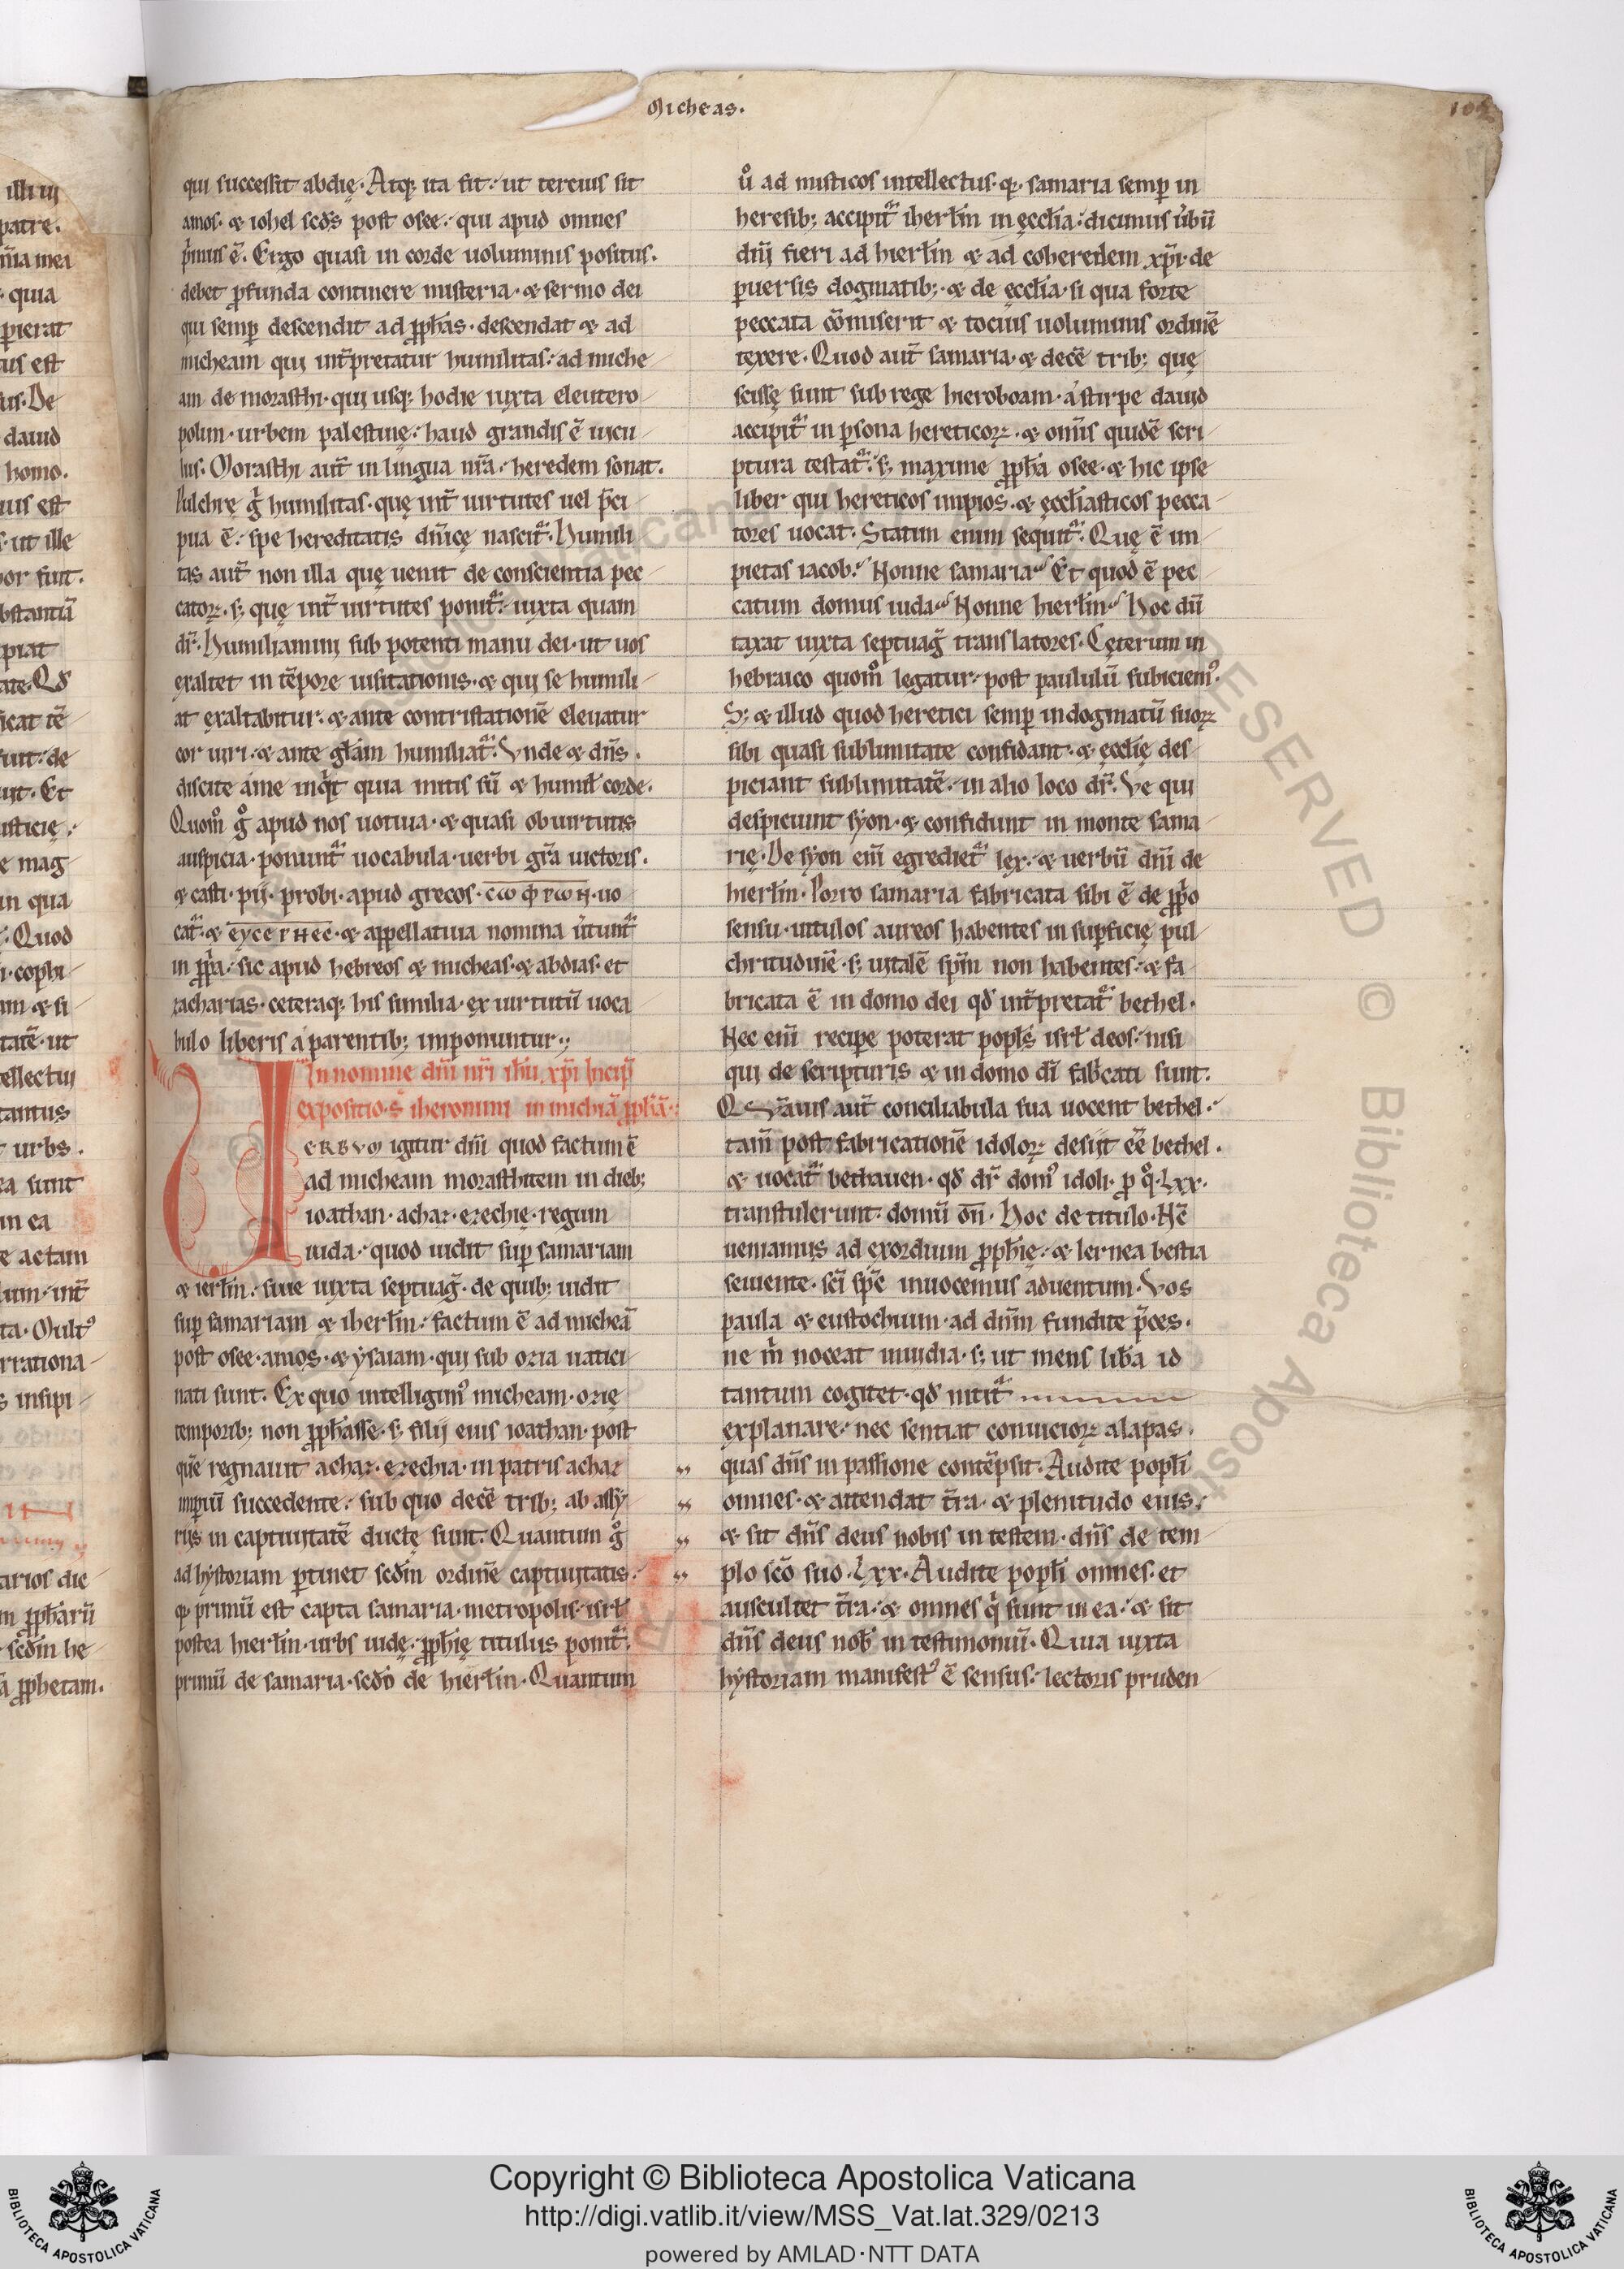 Micheas.
102
qui successit abdię. Atq; ita fit: ut tercius sit
amos. & iohel scd̄s post osee: qui apud omnes
p̄mus ē. Ergo quasi in corde uoluminis positus.
debet ꝓfunda continere misteria. & sermo dei
qui semp̄ descendit ad ꝓph̄as. descendat & ad
micheam qui int̄pretatur humilitas: ad miche
am de morasthi. qui usq; hodie iuxta eleutero
polim. urbem palestinę: haud grandis ē uicu
lus. Morasthi aut̄ in lingua nr̄a: heredem sonat.
Pulchre ḡ humilitas. quę int̄ uirtutes uel p̄ci
pua ē: spe hereditatis dn̄icę nascit᷑. Humili
tas aut̄ non illa quę uenit de conscientia pec
catoꝝ. s; quę int̄ uirtutes ponit᷑: iuxta quam
dr̄. Humiliamini sub potenti manu dei. ut uos
exaltet in tēpore uisitationis. & qui se humili
at exaltabitur: & ante contristationē eleuatur
cor uiri: & ante glām humiliat᷑. Vnde & dn̄s.
discite áme inq̄t quia mitis sū & humil̄ corde.
Quom̊ g̊ apud nos uotiua. & quasi ob uirtutis
auspicia. ponunt᷑ uocabula. uerbi gr̄a uictoris.
& casti. pij. probi. apud grecos. cωφρωн. uo
cat᷑. & eycerнec. & appellatiua nomina ùtunt᷑
in ꝓp̄a: sic apud hebreos & micheas. & abdias. et
zacharias. ceteraq; his similia. ex uirtutū uoca
bulo liberis a parentib; imponuntur.;
In nomine dn̄i nr̄i ih̄u xp̄i Incip̄
expositio. s̄ iheronimi in michiā ꝓph̄ā.
VERBVM igitur dn̄i quod factum ē
ad micheam morasthitem in dieb;
ioathan. achaz. ezechię. regum
iuda: quod uidit sup̄ samariam
& ierl̄m: siue iuxta septuaḡ. de quib; uidit
sup̄ samariam & iherl̄m: factum ē ad micheā
post osee. amos. & ẏsaiam. qui sub ozia uatici
nati sunt. Ex quo intelligim᷒ micheam. ozię
temporib; non ꝓph̄asse. s; filij eius ioathan. post
quē regnauit achaz. ezechia. in patris achaz
imperiū succedente: sub quo decē trib; ab assẏ
rijs in captiuitatē ductę sunt. Quantum g̊
ad hẏstoriam ꝑtinet scd̄m ordinē captiuitatis:
q; primū est capta samaria. metropolis. isrl̄
postea hierl̄m. urbs iudę: ꝓph̄ię titulus ponit᷑.
primū de samaria. scd̄o de hierl̄m. Quantum
u̇̊ ad misticos intellectus. q; samaria semp̄ in
heresib; accipit᷑ iherl̄m in ęcclīa: dicimus u̇bū
dn̄i fieri ad hierl̄m & ad coheredem xp̄i. de
ꝑuersis dogmatib;. & de ęcclīa. si qua forte
peccata cōmiserit & tocius uoluminis ordinē
texere. Quod aut̄ samaria. & decē trib; quę
scissę sunt sub rege hieroboam. a stirpe dauid
accipit᷑ in ꝑsona hereticoꝝ. & omīs quidē scri
ptura testat᷑. s; maxime ꝓph̄a osee. & hic ipse
liber qui hereticos impios. & ęccl̄iasticos pecca
tores uocat. Statim enim sequit᷑. Quę ē im
pietas iacob. Nonne samaria Et quod ē pec
catum domus iuda Nonne hierl̄m Hoc dū
taxat iuxta septuaḡ translatores. Cęterum in
hebraico quom̊ legatur: post paululū subiciem᷒.
S; & illud quod heretici semp̄ in dogmatū suoꝝ
sibi quasi sublimitate confidant. & ęcclīę des
piciant sublimitatē: in alio loco dr̄. Ve qui
despiciunt sẏon. & confidunt in monte sama
rię. De sẏon enī egrediet᷑ lex. & uerbū dn̄i de
hierl̄m. Porro samaria fabricata sibi ē de ꝓp̄o
sensu. uitulos aureos habentes in suꝑficię pul
chritudinē. s; uitalē sp̄m non habentes. & fa
bricata ē in domo dei qd̄ int̄pretat᷑ bethel.
Nec enī recipe poterat popl̄s isrl̄ deos. nisi
qui de scripturis & in domo dī fab̄cati sunt.
QVāuis aut̄ conciliabula sua uocent bethel:
tam̄ post fabricationē idoloꝝ desijt eē bethel.
& uocat᷑ bethauen. qd̄ dr̄ dom᷒ idoli. ꝓ q̊. lxx.
transtulerunt. domū ōn. Hoc de titulo. Nē
ueniamus ad exordium ꝓph̄ię: & lernea bestia
seuiente. sc̄i sp̄c inuocemus aduentum. Vos
paula & eustochium. ad dn̄m fundite p̄ces.
ne m̄ noceat inuidia. s; ut mens lib̄a id
tantum cogitet. qd̄ nitit᷑
explanare. nec sentiat conuicioꝝ alapas.
quas dn̄s in passione contēpsit. Audite popl̄i
omnes. & attendat t̄ra. & plenitudo eius.
& sit dn̄s deus nobis in testem. dn̄s de tem
plo sc̄o suo. Lxx. Audite popl̄i omnes. et
auscultet t̄ra. & omnes q̄ sunt in ea. & sit
dn̄s deus nob̄ in testimoniū. Quia iuxta
hẏstoriam manifest᷒ ē sensus: lectoris pruden
Copyright © Biblioteca Apostolica Vaticana
http://digi.vatlib.it/view/MSS_Vat.lat.329/0213
powered by AMLAD·NTT DATA
BIBLIOTECA APOSTOLICA VATICANA
BIBLIOTECA APOSTOLICA VATICANA